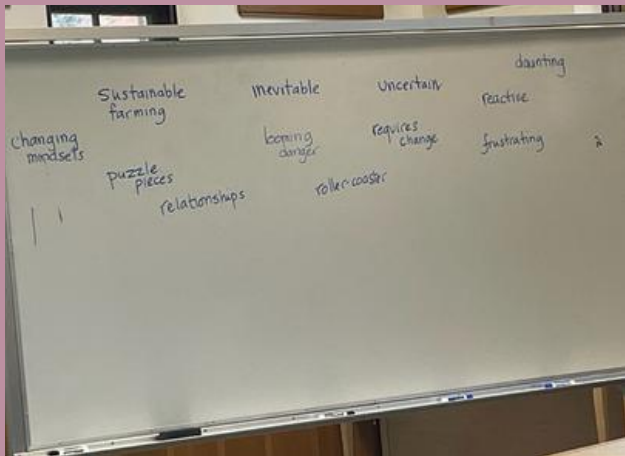 daunting
Sustainable
farming
inevitable
uncertain
reactive
changing
mindsets
looming
danger
requires
change
frustrating
puzzle
pieces
relationships
roller-coaster